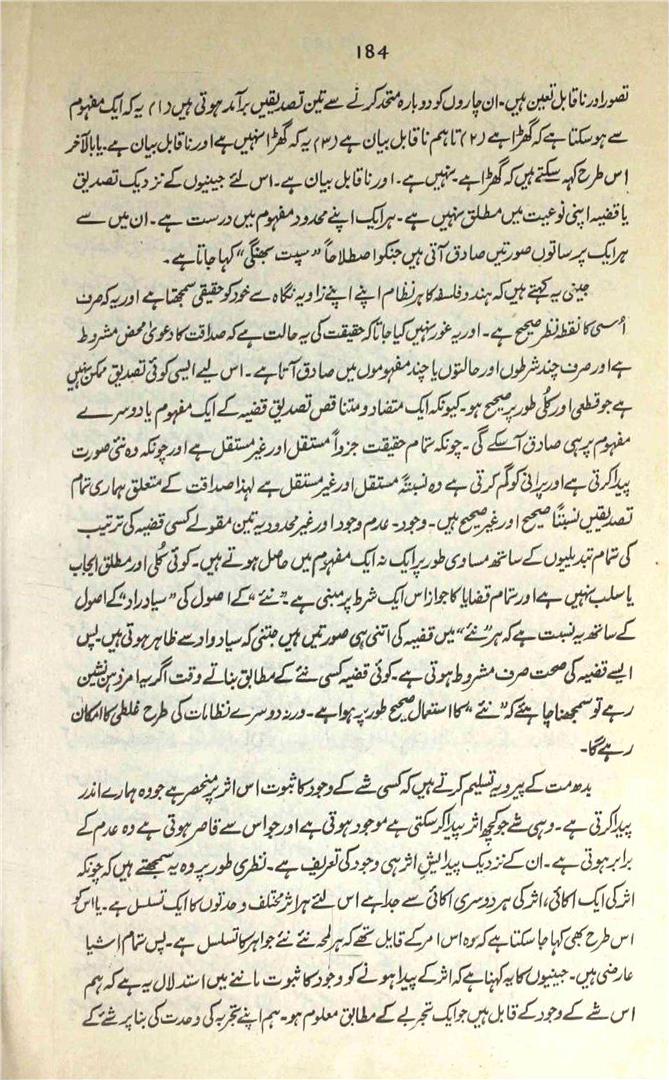 184
تصور اور ناقابل تعین ہیں۔ ان چاروں کو دوبارہ متحد کرنے سے تین تصدیقیں برآمد ہوتی ہیں (۱) یہ کہ ایک مفہوم
سے ہو سکتا ہے کہ گھڑا ہے (۲) تاہم ناقابل بیان ہے (۳) یہ کہ گھڑا نہیں ہے اور ناقابل بیان ہے۔ یا بالآخر
اس طرح کہہ سکتے ہیں کہ گھڑا ہے۔ نہیں ہے۔ اور ناقابل بیان ہے۔ اس لئے جینیوں کے نزدیک تصدیق
یا قضیہ اپنی نوعیت میں مطلق نہیں ہے۔ ہر ایک اپنے محدود مفہوم میں درست ہے۔ ان میں سے
ہر ایک پر ساتوں صورتیں صادق آتی ہیں جنکو اصطلاحاً "سپت بھنگی" کہا جاتا ہے۔
جینی یہ کہتے ہیں کہ ہندو فلسفہ کا ہر نظام اپنے اپنے زاویہ نگاہ سے خود کو حقیقی سمجھتا ہے اور یہ کہ صرف
اُسی کا نقطۂ نظر صحیح ہے۔ اور یہ غور نہیں کیا جاتا کہ حقیقت کی یہ حالت ہے کہ صداقت کا دعویٰ محض مشروط
ہے اور صرف چند شرطوں اور حالتوں یا چند مفہوموں میں صادق آتا ہے۔ اس لیے ایسی کوئی تصدیق ممکن نہیں
ہے جو قطعی اور کُلی طور پر صحیح ہو۔ کیونکہ ایک متضاد و متناقص تصدیق قضیہ کے ایک مفہوم یا دوسرے
مفہوم پر ہی صادق آ سکے گی۔ چونکہ تمام حقیقت جزواً مستقل اور غیر مستقل ہے اور چونکہ وہ نئی صورت
پیدا کرتی ہے اور پرانی کو گم کرتی ہے وہ نسبتہً مستقل اور غیر مستقل ہے لہذا صداقت کے متعلق ہماری تمام
تصدیقیں نسبتاً صحیح اور غیر صحیح ہیں۔ وجود۔ عدم وجود اور غیر محدود یہ تین مقولے کسی قضیہ کی ترتیب
کی تمام تبدیلیوں کے ساتھ مساوی طور پر ایک نہ ایک مفہوم میں حاصل ہوتے ہیں۔ کوئی کُلی اور مطلق ایجاب
یا سلب نہیں ہے اور تمام قضایا کا جواز اس ایک شرط پر مبنی ہے۔ "نئے" کے اصول کی "سیادراد" کے اصول
کے ساتھ یہ نسبت ہے کہ ہر "نئے" میں قضیہ کی اتنی ہی صورتیں ہیں جتنی کہ سیادواد سے ظاہر ہوتی ہیں۔ پس
ایسے قضیہ کی صحت صرف مشروط ہوتی ہے۔ کوئی قضیہ کسی نئے کے مطابق بناتے وقت اگر یہ امر ذہن نشین
رہے تو سمجھنا چاہئے کہ "نئے" کا استعمال صحیح طور پر ہوا ہے۔ ورنہ دوسرے نظامات کی طرح غلطی کا امکان
رہے گا۔
بدھ مت کے پیرو یہ تسلیم کرتے ہیں کہ کسی شے کے وجود کا ثبوت اس اثر پر منحصر ہے جو وہ ہمارے اندر
پیدا کرتی ہے۔ وہی شے جو کچھ اثر پیدا کر سکتی ہے موجود ہوتی ہے اور جو اس سے قاصر ہوتی ہے وہ عدم کے
برابر ہوتی ہے۔ ان کے نزدیک پیدائش اثر ہی وجود کی تعریف ہے۔ نظری طور پر وہ یہ سمجھتے ہیں کہ چونکہ
اثر کی ایک اکائی، اثر کی ہر دوسری اکائی سے جدا ہے اس لئے ہر اثر مختلف وحدتوں کا ایک تسلسل ہے۔ یا اس کو
اس طرح بھی کہا جا سکتا ہے کہ وہ اس امر کے قابل تھے کہ ہر لمحہ نئے نئے جواہر کا تسلسل ہے۔ پس تمام اشیا
عارضی ہیں۔ جینیوں کا یہ کہنا ہے کہ اثر کے پیدا ہونے کو وجود کا ثبوت ماننے میں استدلال یہ ہے کہ ہم
اس شے کے وجود کے قابل ہیں جو ایک تجربے کے مطابق معلوم ہو۔ ہم اپنے تجربہ کی وحدت کی بنا پر شئے کے